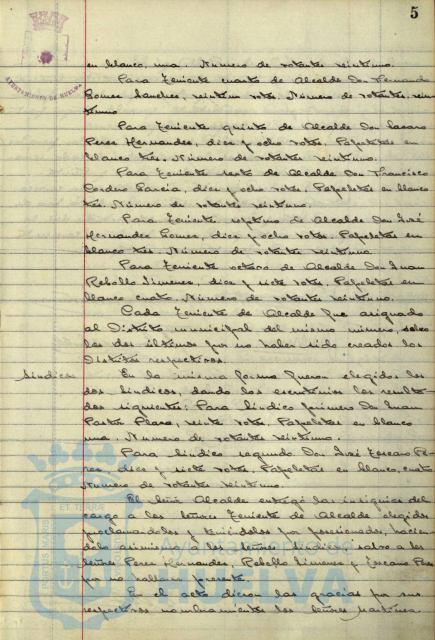 5
AYUNTAMIENTO DE HUELVA
en blanco, una. Numero de votantes veintiuno.
Para Teniente cuarto de Alcalde Don Fernando
Gomez Sanchez, veintiun votos. Número de votantes, vein-
tiuno
Para Teniente quinto de Alcalde Don Lazaro
Perez Hernandez, diez y ocho votos. Papeletas en
blanco tres. Número de votantes veintiuno.
Para Teniente sexto de Alcalde Don Francisco
Cordero Garcia, diez y ocho votos. Papeletas en blanco
tres. Número de votantes veintiuno.
Para Teniente septimo de Alcalde Don José
Hernandez Gomez, diez y ocho votos. Papeletas en
blanco tres. Número de votantes veintiuno.
Para Teniente octavo de Alcalde Don Juan
Rebollo Jimenez, diez y siete votos. Papeletas en
blanco cuatro. Número de votantes veintiuno.
Cada Teniente de Alcalde fue asignado
al Distrito municipal del mismo número, salvo
los dos últimos por no haber sido creados los
Distritos respectivos.
Sindicos
En la misma forma fueron elegidos los
dos Sindicos, dando los escrutinios los resulta-
dos siguientes: Para Sindico primero Don Juan
Pastor Plaza, veinte votos. Papeletas en blanco
una. Numero de votantes veintiuno.
Para Sindico segundo Don José Toscano Pé-
rez, diez y siete votos. Papeletas en blanco, cuatro
Numero de votantes veintiuno.
El Señor Alcalde entregó las insignias del
cargo a los Señores Teniente de Alcalde elegidos
proclamandolos y teniéndolos por posesionados, hacien-
dolo asimismo a los Señores Sindicos salvo a los
Señores Perez Hernandez, Rebollo Jimenez y Toscano Perez
por no hallarse presente.
En el acto dieron las gracias por sus
respectivos nombramientos los Señores Martinez.
PORTUS MARIS ET TERRAE
Ayuntamiento de
HUELVA